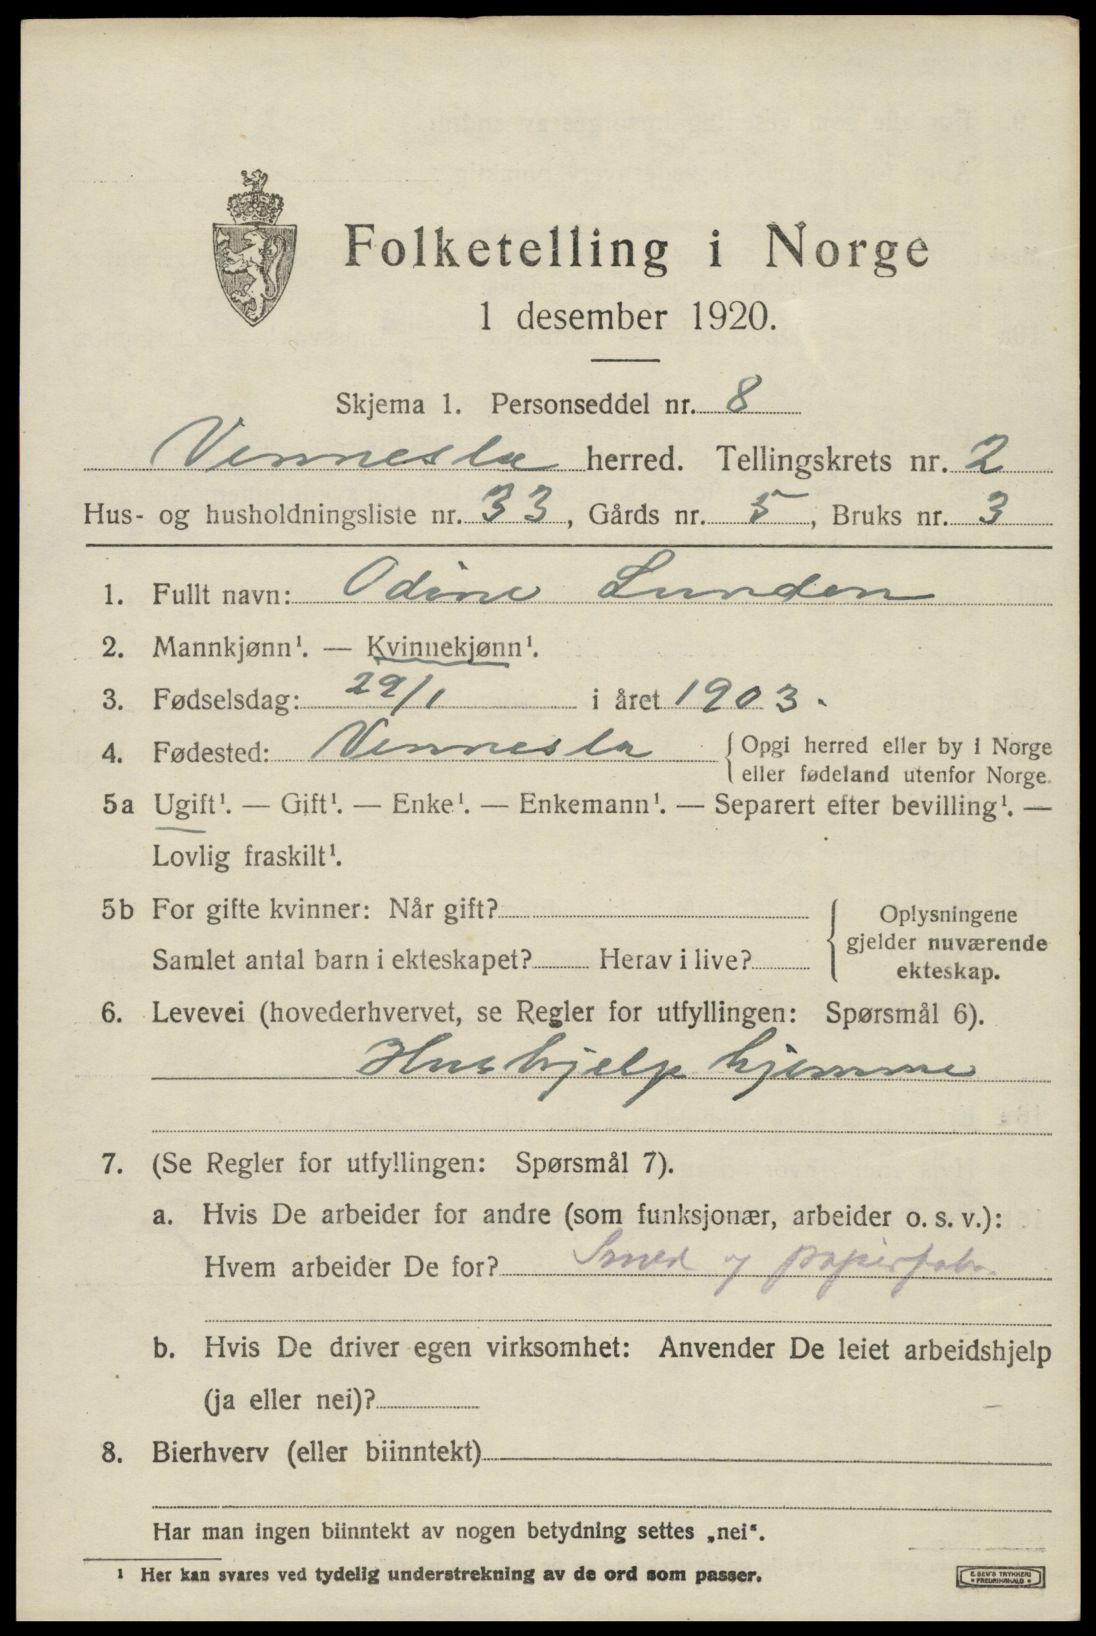 Folketelling i Norge
1 desember 1920.
Skjema 1. Personseddel nr. 8
Vennesla herred. Tellingskrets nr. 2
Hus- og husholdningsliste nr. 33, Gårds nr. 5, Bruks nr. 3
1. Fullt navn: Odine Lunden
2. Mannkjønn¹. — Kvinnekjønn¹.
3. Fødselsdag: 29/1 i året 1903.
4. Fødested: Vennesla {Opgi herred eller by i Norge
eller fødeland utenfor Norge.
5a Ugift¹. — Gift¹. — Enke¹. — Enkemann¹. — Separert efter bevilling¹. —
Lovlig fraskilt¹.
5b For gifte kvinner: Når gift?
Samlet antal barn i ekteskapet? Herav i live?
{Oplysningene
gjelder nuværende
ekteskap.
6. Levevei (hovederhvervet, se Regler for utfyllingen: Spørsmål 6).
Hushjelp hjemme
7. (Se Regler for utfyllingen: Spørsmål 7).
a. Hvis De arbeider for andre (som funksjonær, arbeider o. s. v.):
Hvem arbeider De for? Smed og papirfabr.
b. Hvis De driver egen virksomhet: Anvender De leiet arbeidshjelp
(ja eller nei)?
8. Bierhverv (eller biinntekt)
Har man ingen biinntekt av nogen betydning settes „nei“.
¹ Her kan svares ved tydelig understrekning av de ord som passer.